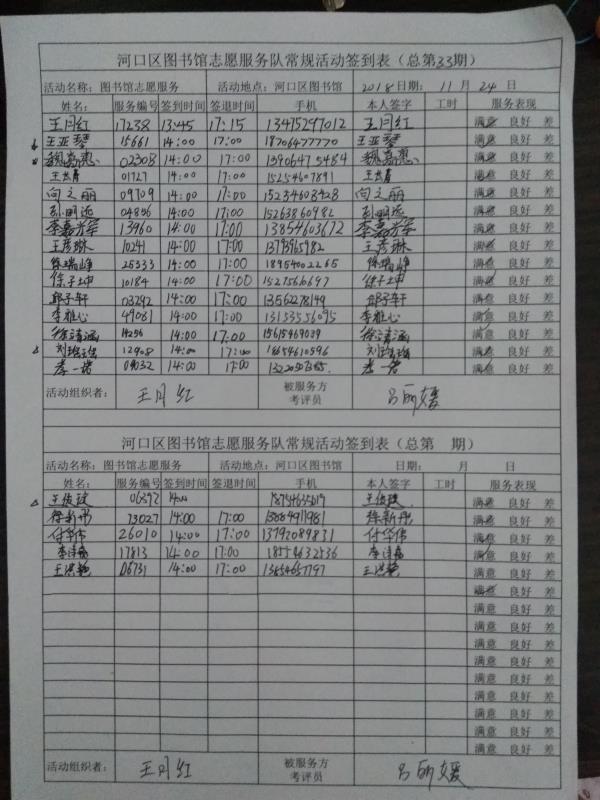 河口区图书馆志愿服务队常规活动签到表（总第33期）
活动名称：图书馆志愿服务 活动地点：河口区图书馆 2018日期： 11 月 24 日
姓名： 服务编号 签到时间 签退时间 手机 本人签字 工时 服务表现
王月红 17238 13:45 17:15 13475297012 王月红 满意 良好 差
王亚琴 15661 14:00 17:00 18706477770 王亚琴 满意 良好 差
魏嘉惠 02308 14:00 17:00 13906475484 魏嘉惠 满意 良好 差
01727 14:00 17:00 15254607891 满意 良好 差
向之丽 09709 14:00 17:00 15234603428 向之丽 满意 良好 差
孙明远 04856 14:00 17:00 15263860982 孙明远 满意 良好 差
李嘉 13960 14:00 17:00 13854603672 李嘉 满意 良好 差
王彦琳 10241 14:00 17:00 王彦琳 满意 良好 差
徐瑞峥 25333 14:00 17:00 18954002265 徐瑞峥 满意 良好 差
徐子坤 10184 14:00 17:00 徐子坤 满意 良好 差
邱子轩 03242 14:00 17:00 13562278149 邱子轩 满意 良好 差
李雅心 49081 14:00 17:00 13153556095 李雅心 满意 良好 差
徐清涵 14256 14:00 17:00 15615469039 徐清涵 满意 良好 差
12908 14:00 17:00 18654610596 满意 良好 差
李一諾 09032 14:00 17:00 李一諾 满意 良好 差
活动组织者： 王月红 被服务方考评员 吕丽媛
河口区图书馆志愿服务队常规活动签到表（总第 期）
活动名称：图书馆志愿服务 活动地点：河口区图书馆 日期： 月 日
姓名： 服务编号 签到时间 签退时间 手机 本人签字 工时 服务表现
王俊玻 06392 14:00 王俊玻 满意 良好 差
徐新彤 73027 14:00 17:00 徐新彤 满意 良好 差
付华伟 26010 14:00 17:00 13792089831 付华伟 满意 良好 差
17813 14:00 17:00 18554632236 满意 良好 差
王洪艳 06731 14:00 17:00 13854657797 王洪艳 满意 良好 差
满意 良好 差
满意 良好 差
满意 良好 差
满意 良好 差
满意 良好 差
满意 良好 差
满意 良好 差
满意 良好 差
满意 良好 差
活动组织者： 王月红 被服务方考评员 吕丽媛